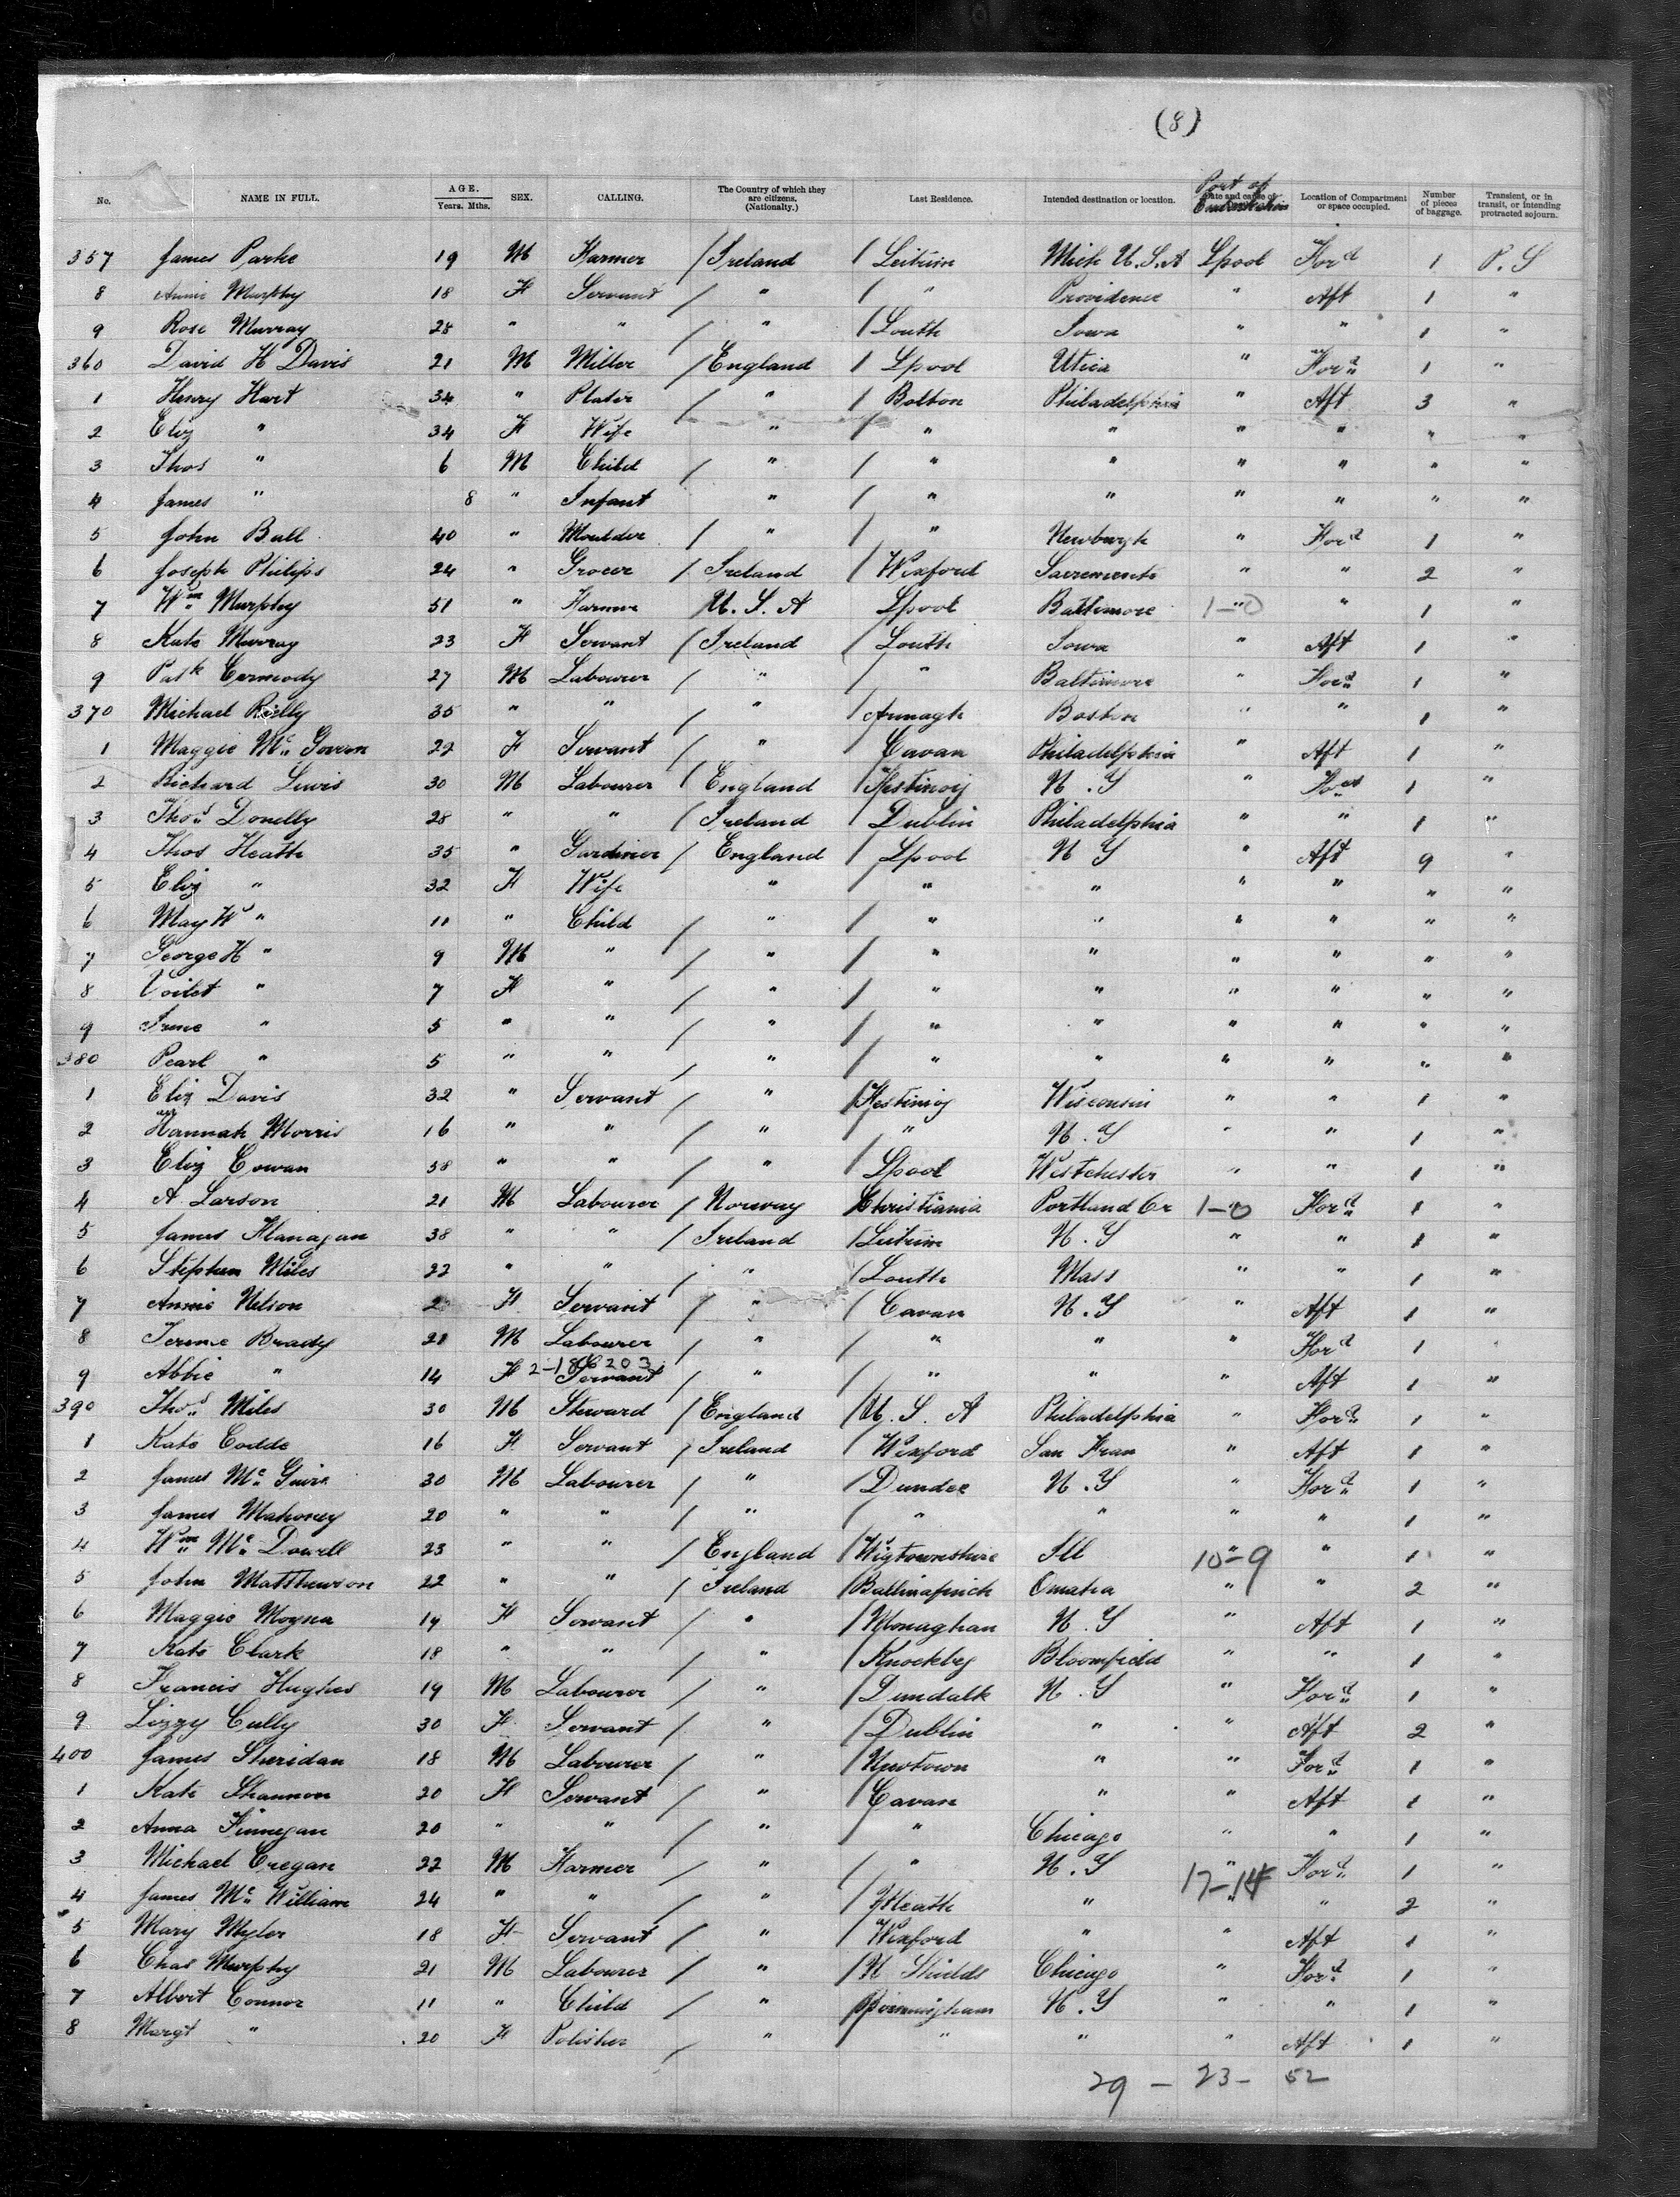 (8)
No. NAME IN FULL. AGE. Years. Mths. SEX. CALLING. The Country of which they are citizens. (Nationality.) Last Residence. Intended destination or location. Port of Embarkation Location of Compartment or space occupied. Number of pieces of baggage. Transient, or in transit, or intending protracted sojourn.
357 James Parke 19 M Farmer / Ireland / Leitrim Mich U.S.A Lpool Ford 1 P.S
8 Annie Murphy 18 F Servant / " / " Providence " Aft 1 "
9 Rose Murray 28 " " / " / Louth Iowa " " 1 "
360 David H Davis 21 M Miller / England / Lpool Utica " Ford 1 "
1 Henry Hart 34 " Plater / " / Bolton Philadelphia " Aft 3 "
2 Eliz " 34 F Wife " / " " " " " "
3 Thos " 6 M Child / " / " " " " " "
4 James " 8 " Infant " / " " " " " "
5 John Bull 40 " Moulder / " / " Newburgh " Ford 1 "
6 Joseph Philips 24 " Grocer / Ireland / Wexford Sacremento " " 2 "
7 Wm Murphy 51 " Farmer U.S.A Lpool Baltimore 1-0 " 1 "
8 Kate Murray 23 F Servant / Ireland / Louth Iowa " Aft 1 "
9 Patk Carmody 27 M Labourer / " / " Baltimore " Ford 1 "
370 Michael Reilly 35 " " / " / Armagh Boston " " 1 "
1 Maggie Mc Govern 22 F Servant / " / Cavan Philadelphia " Aft 1 "
2 Richard Lewis 30 M Labourer / England / Festiniog N.Y " Ford 1 "
3 Thos Donelly 28 " " / Ireland / Dublin Philadelphia " " 1 "
4 Thos Heath 35 " Gardiner / England / Lpool N Y " Aft 9 "
5 Eliz " 32 F Wife " / " " " " " "
6 May W " 11 " Child / " / " " " " " "
7 George H " 9 M " / " / " " " " " "
8 Voilet " 7 F " / " / " " " " " "
9 Irene " 5 " " / " / " " " " " "
380 Pearl " 5 " " / " / " " " " " "
1 Eliz Davis 32 " Servant / " / Festiniog Wisconsin " " 1 "
2 Hannah Morris 16 " " / " / " N.Y " " 1 "
3 Eliz Cowan 58 " " / " / Lpool Westchester " " 1 "
4 A Larson 21 M Labourer / Norway / Christiania Portland Or 1-0 Ford 1 "
5 James Flanagan 38 " " / Ireland / Leitrim N.Y " " 1 "
6 Stephen Miles 22 " " / " / Louth Mass " " 1 "
7 Annie Nelson 2 F Servant / " / Cavan N.Y " Aft 1 "
8 Terence Brady 21 M Labourer / " / " " " Ford 1
2-186203
9 Abbie " 14 F Servant / " / " " " Aft 1 "
390 Thos Miles 30 M Steward / England / U.S.A Philadelphia " Ford 1 "
1 Kate Codde 16 F Servant / Ireland / Wexford San Fran " Aft 1 "
2 James Mc Guire 30 M Labourer / " / Dundee N.Y " Ford 1 "
3 James Mahoney 20 " " / " / " " " " 1 "
4 Wm Mc Dowell 23 " " / England / Wigtownshire Ill 10-9 " 1 "
5 John Matthewson 22 " " / Ireland / Ballinafinich Omaha " " 2 "
6 Maggie Moyna 19 F Servant / " / Monaghan N.Y " Aft 1 "
7 Kate Clark 18 " " / " / Knockbeg Bloomfield " " 1 "
8 Francis Hughes 19 M Labourer / " / Dundalk N.Y " Ford 1 "
9 Lizzy Cully 30 F Servant / " / Dublin " " Aft 2 "
400 James Sheridan 18 M Labourer / " / Newtown " " Ford 1 "
1 Kate Shannon 20 F Servant / " / Cavan " " Aft 1 "
2 Anna Finnegan 20 " " / " / " Chicago " " 1 "
3 Michael Cregan 22 M Farmer / " / " N.Y " Ford 1 "
4 James Mc William 24 " " / " / Meath " 17-14 " 2 "
5 Mary Myler 18 F Servant / " / Wexford " " Aft 1 "
6 Chas Murphy 21 M Labourer / " / N Shields Chicago " Ford 1 "
7 Albert Connor 11 " Child / " / Birmingham N.Y " " 1 "
8 Margt " 20 F Polisher / " " " " Aft 1 "
29 - 23 - 52